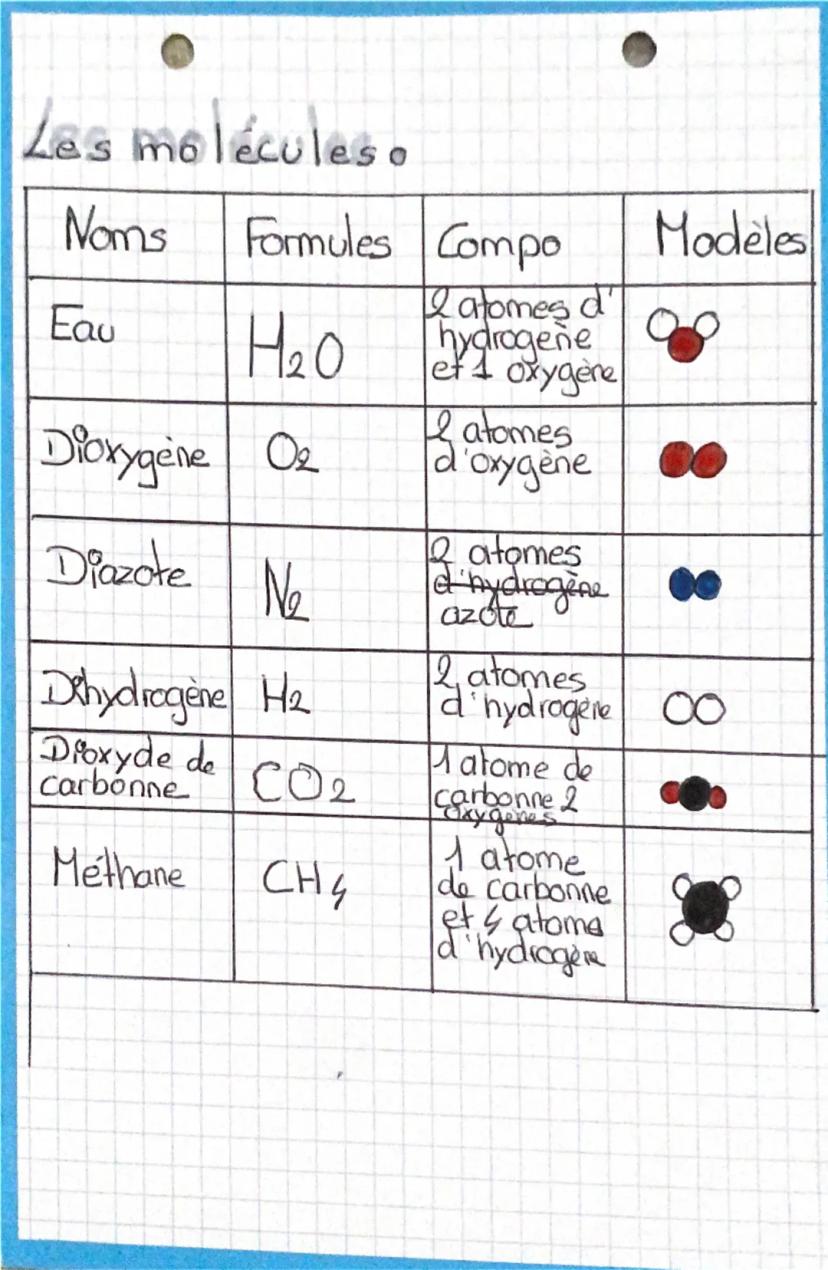 Les molécules
Noms Formules Compo Modèles
Eau H₂O 2 atomes d'
hydrogène
et 1 oxygène
Dioxygène O₂ 2 atomes
d'oxygène
Diazote N₂ 2 atomes
d'hydrogène
azote
Dihydrogène H₂ 2 atomes
d'hydrogène
Dioxyde de
carbonne CO₂ 1 atome de
carbonne 2
oxygènes
Méthane CH₄ 1 atome
de carbonne
et 4 atome
d'hydrogène